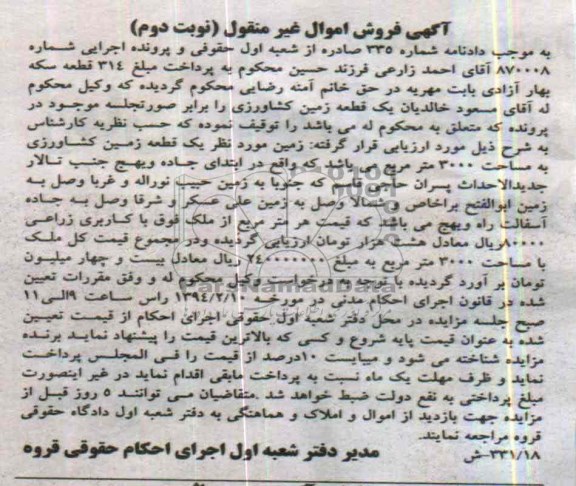 آگهی فروش اموال غیر منقول (نوبت دوم)
به موجب دادنامه شماره ۳۳۵ صادره از شعبه اول حقوقی و پرونده اجرایی شماره
۸۷۰۰۰۸ آقای احمد زارعی فرزند حسین محکوم به پرداخت مبلغ ۳۱۴ قطعه سکه
بهار آزادی بابت مهریه در حق خانم آمنه رضایی محکوم گردیده که وکیل محکوم
له آقای مسعود خالدیان یک قطعه زمین کشاورزی را برابر صورتجلسه موجود در
پرونده که متعلق به محکوم له می باشد را توقیف نموده که حسب نظریه کارشناس
به شرح ذیل مورد ارزیابی قرار گرفته: زمین مورد نظر یک قطعه زمین کشاورزی
به مساحت ۳۰۰۰ متر مربع می باشد که واقع در ابتدای جاده ویهج جنب تالار
جدیدالاحداث پسران حاجی می که جنوبا به زمین حبیب نوراله و غربا وصل به
زمین ابوالفتح براخاص و شمالا وصل به زمین علی عسکر و شرقا وصل به جاده
آسفالت راه ویهج می باشد که قیمت هر متر مربع از ملک فوق با کاربری زراعی
۸۰۰۰۰ریال معادل هشت هزار تومان ارزیابی گردیده ودر مجموع قیمت کل ملک
با مساحت ۳۰۰۰ متر مربع به مبلغ ۲۴۰۰۰۰۰۰۰ ریال معادل بیست و چهار میلیون
تومان بر آورد گردیده با توجه به درخواست وکیل محکوم له و وفق مقررات تعیین
شده در قانون اجرای احکام مدنی در مورخه ۱۳۹۴/۲/۱۰ راس ساعت ۹الی۱۱
صبح جلسه مزایده در محل دفتر شعبه اول حقوقی اجرای احکام از قیمت تعیین
شده به عنوان قیمت پایه شروع و کسی که بالاترین قیمت را پیشنهاد نماید برنده
مزایده شناخته می شود و میبایست ۱۰درصد از قیمت را فی المجلس پرداخت
نماید و ظرف مهلت یک ماه نسبت به پرداخت مابقی اقدام نماید در غیر اینصورت
مبلغ پرداختی به نفع دولت ضبط خواهد شد .متقاضیان می توانند ۵ روز قبل از
مزایده جهت بازدید از اموال و املاک و هماهنگی به دفتر شعبه اول دادگاه حقوقی
قروه مراجعه نمایند.
مدیر دفتر شعبه اول اجرای احکام حقوقی قروه
۳۳۱/۱۸-ش